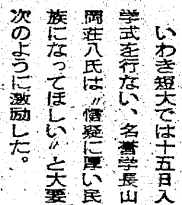 いわき短大では十五日入
学式を行ない、名誉学長山
岡荘八氏は〝情疑に厚い民
族になってほしい〟と大要
次のように激励した。